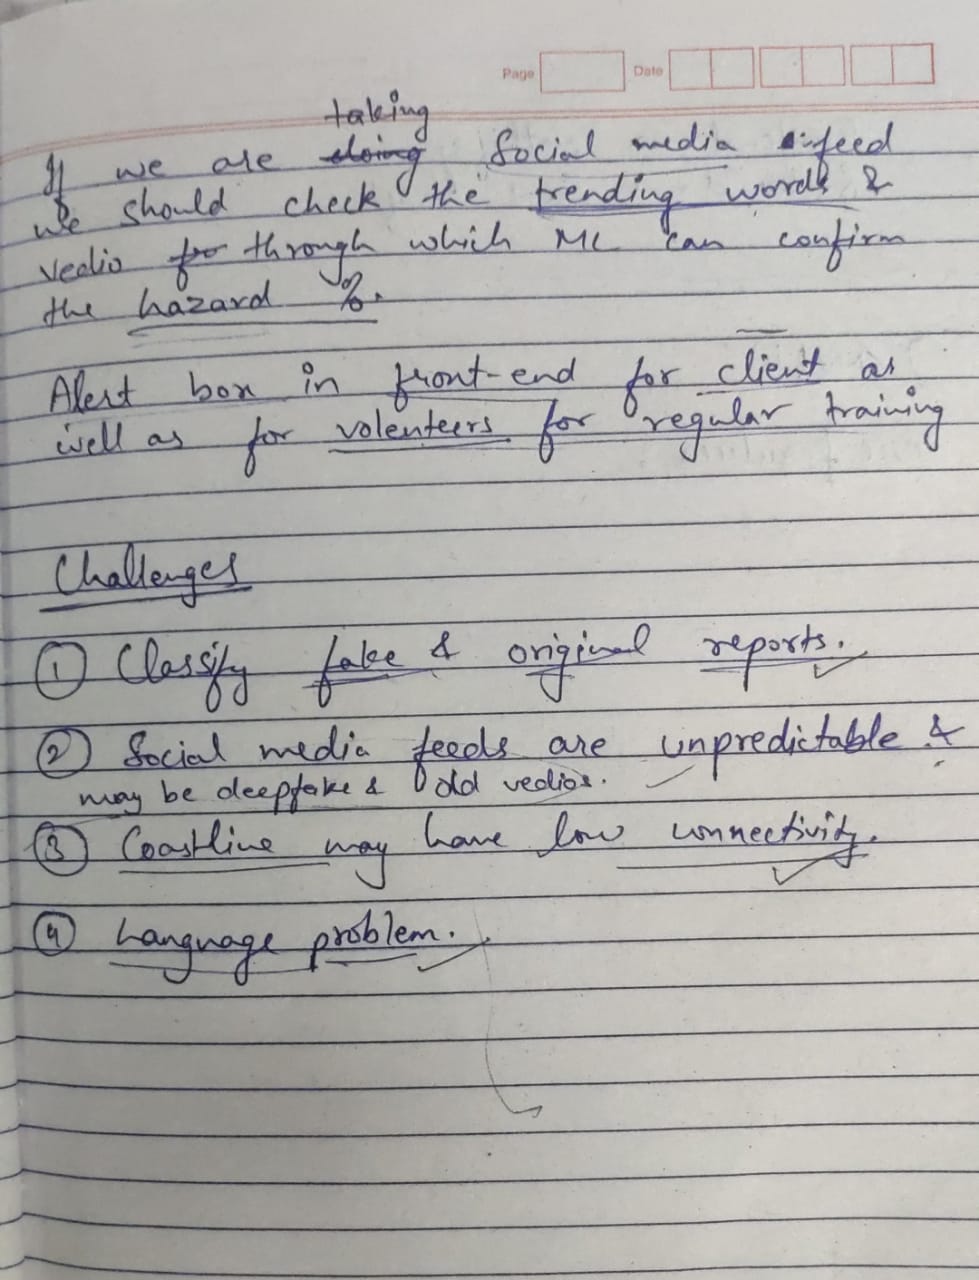 Page Date
taking
If we are doing Social media feed
we should check the trending words &
vedio for through which ML can confirm
the hazard %.
Alert box in front-end for client as
well as for volenteers for regular training
Challenges
① Classify fake & original reports.
② Social media feeds are unpredictable &
may be deepfake & old vedios.
③ Coastline may have low connectivity.
④ Language problem.